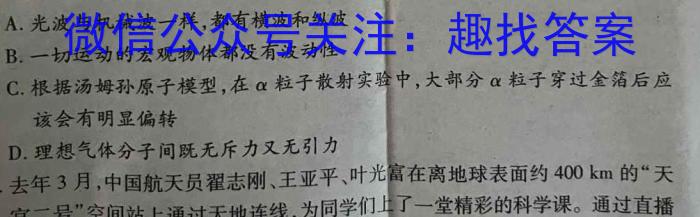 A. 光波与机械波一样,都有横波和纵波
微信公众号关注：趣找答案
B. 一切运动的宏观物体都没有波动性
C. 根据汤姆孙原子模型,在 α 粒子散射实验中,大部分 α 粒子穿过金箔后应
该会有明显偏转
D. 理想气体分子间既无斥力又无引力
去年 3 月,中国航天员翟志刚、王亚平、叶光富在离地球表面约 400 km 的“天
宫二号”空间站上通过天地连线,为同学们上了一堂精彩的科学课。通过直播